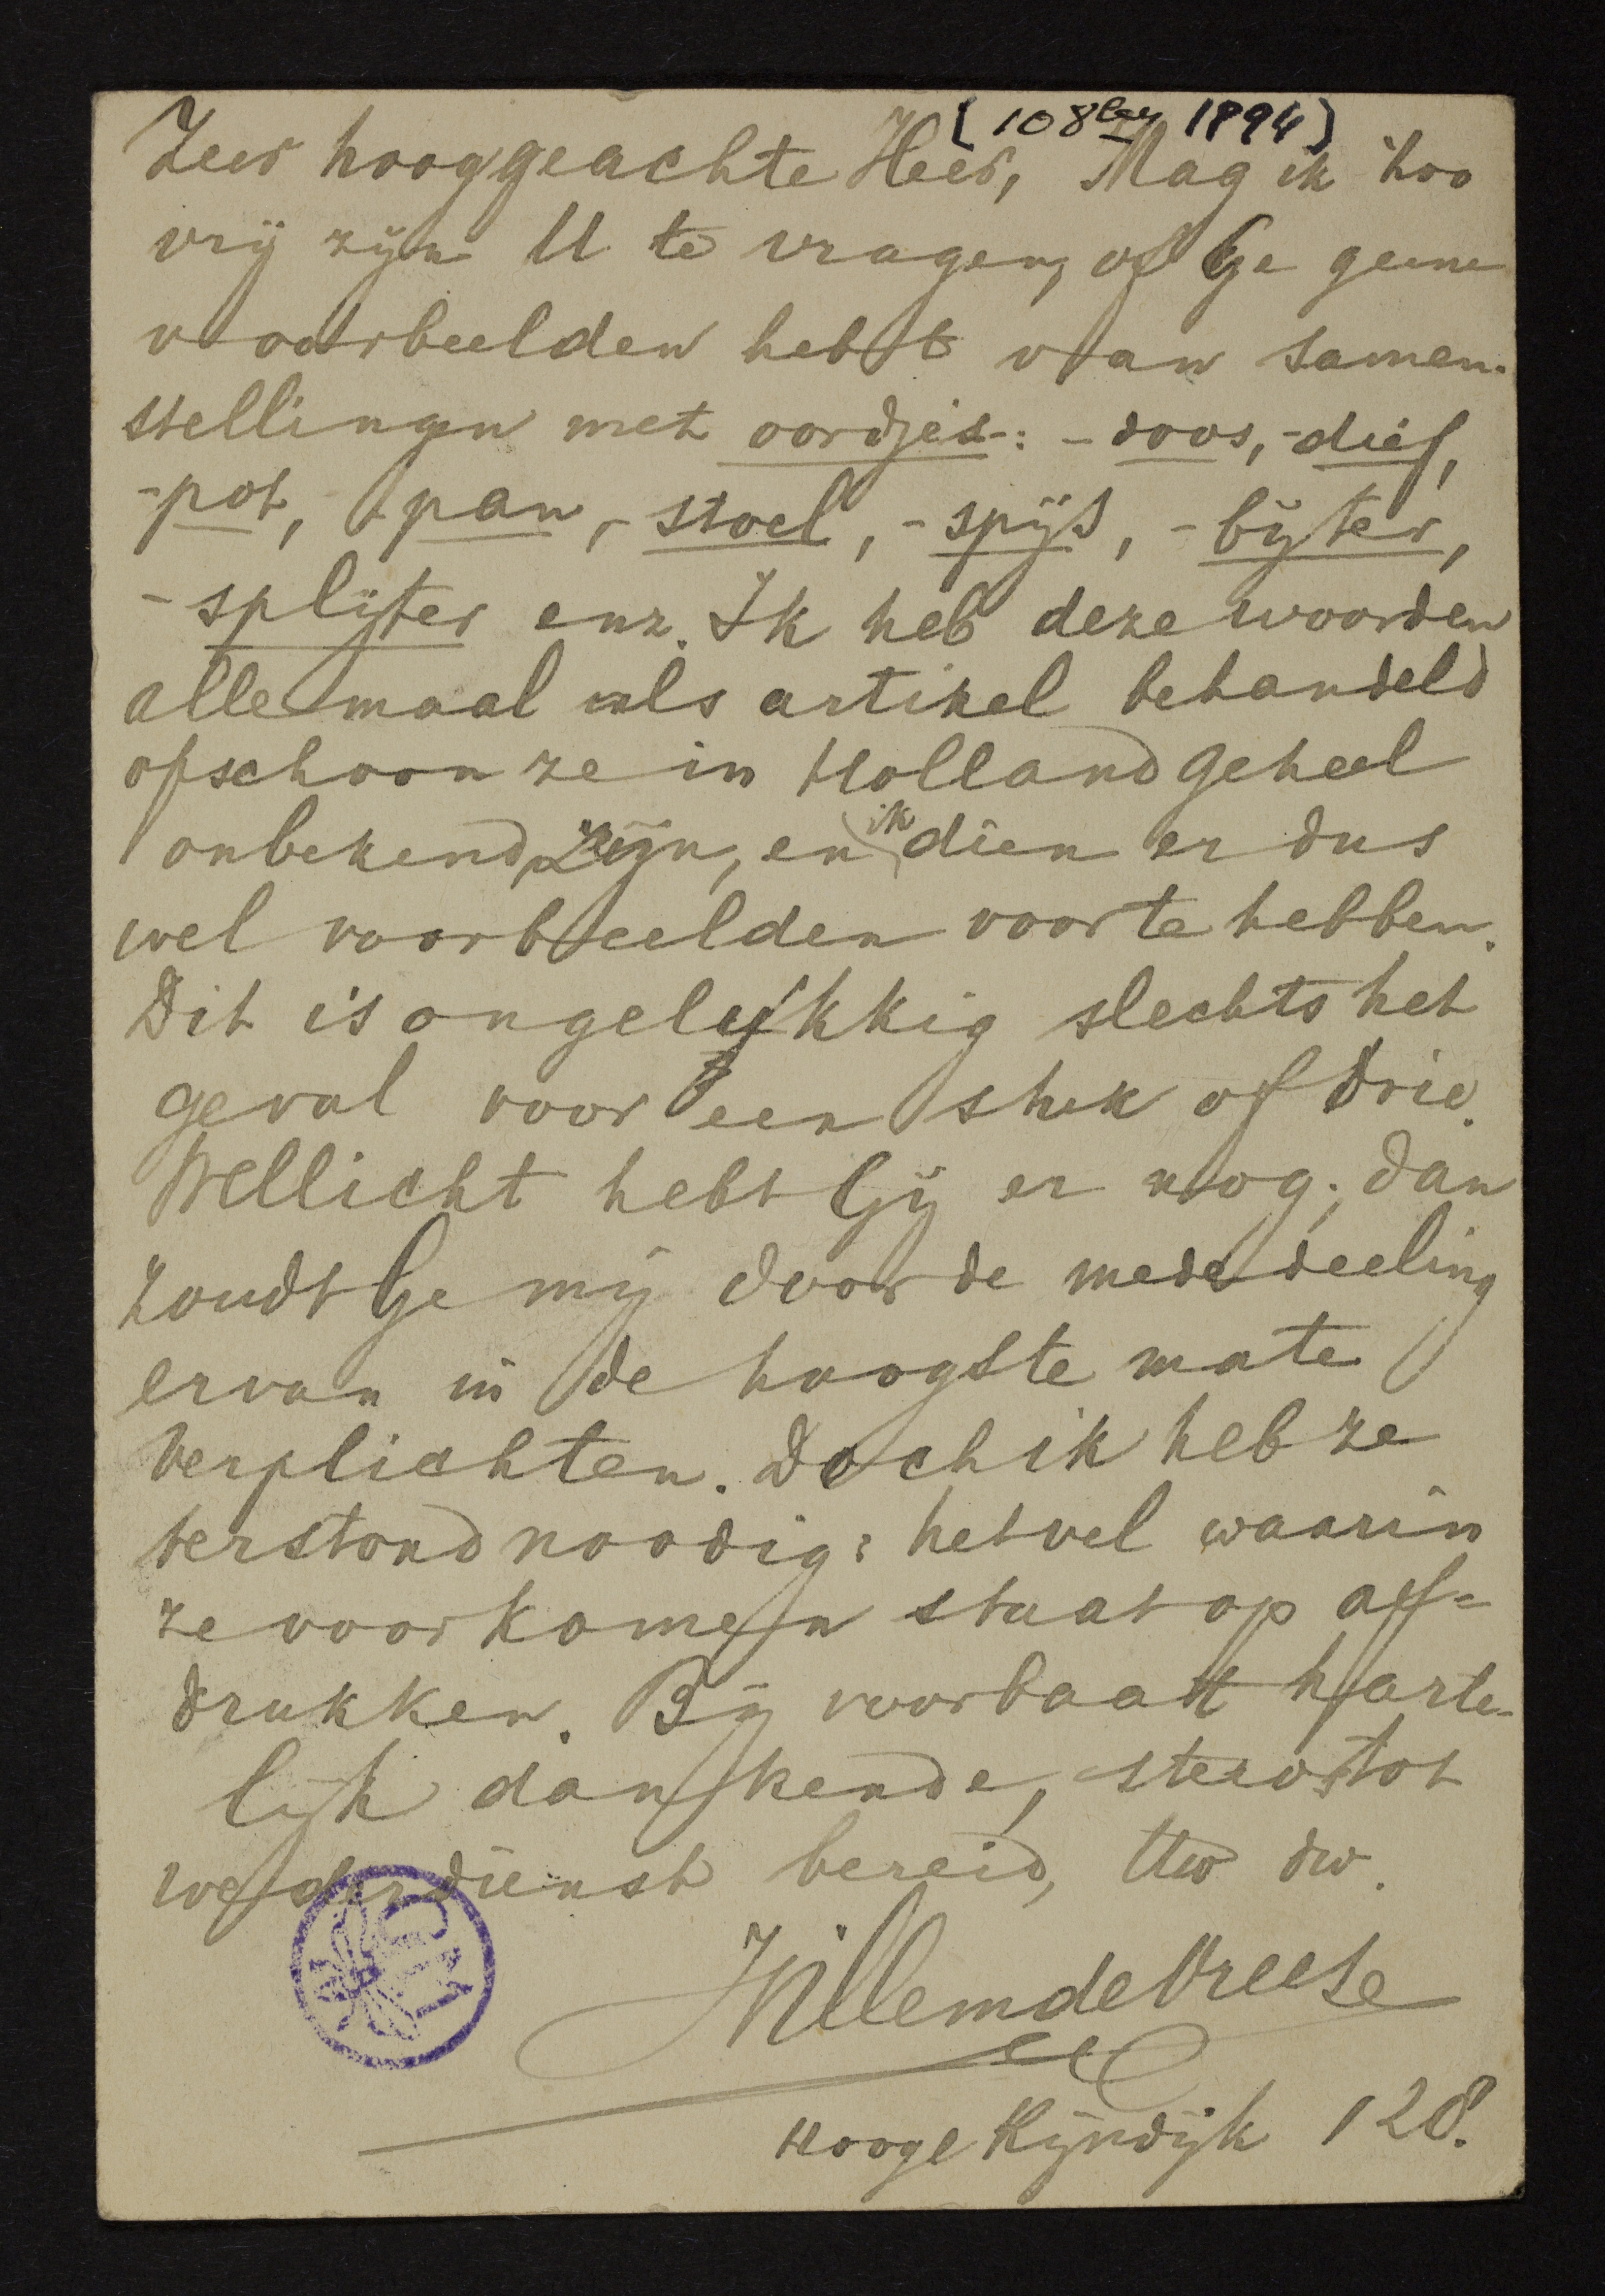 [10 8ber 1894]
Zeer hooggeachte Heer, Mag ik zoo
vrij zijn U te vragen, of Ge geene
voorbeelden hebt van samen-
stellingen met oordjes-: -doos, -dief,
-pot, -pan, -stoel, -spijs, -bijter,
-splijter enz. Ik heb deze woorden
allemaal als artikel behandeld
ofschoon ze in Holland geheel
onbekend zijn, en ik dien er dus
wel voorbeelden voor te hebben.
Dit is ongelukkig slechts het
geval voor een stuk of drie.
Wellicht hebt Gij er nog; dan
zoudt Ge mij door de mededeeling
ervan in de hoogste mate
verplichten. Doch ik heb ze
terstond noodig: het vel waarin
ze voorkomen staat op af-
drukken. Bij voorbaat harte-
lijk dankende, steeds tot
wederdienst bereid, Uw dw.
Willem de Vreese
Hooge Rijndijk 128.